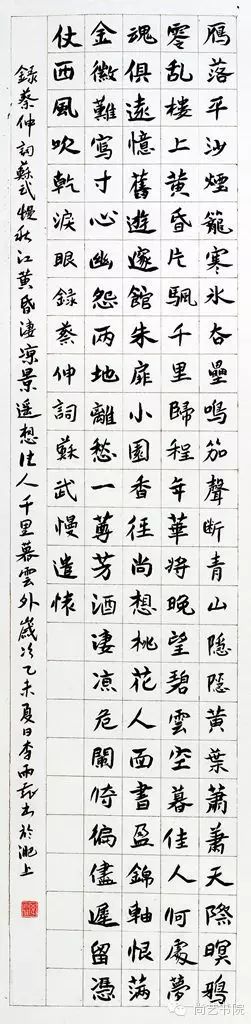 鴈落平沙煙籠寒水古壘鳴笳聲斷青山隱隱黃葉蕭蕭天際暝鴉
零亂樓上黃昏片颿千里歸程年華將晚望碧雲空暮佳人何處夢
魂俱遠憶舊遊邃館朱扉小園香徑尚想桃花人面書盈錦軸恨滿
金徽難寫寸心幽怨兩地離愁一尊芳酒淒涼危闌倚徧儘遲留憑
仗西風吹乾淚眼錄蔡仲詞蘇武慢遣懷
錄蔡仲詞蘇武慢秋江黃昏淒凉景遥想佳人千里暮雲外歲次乙未夏日李雨書於淝上
尚艺书院